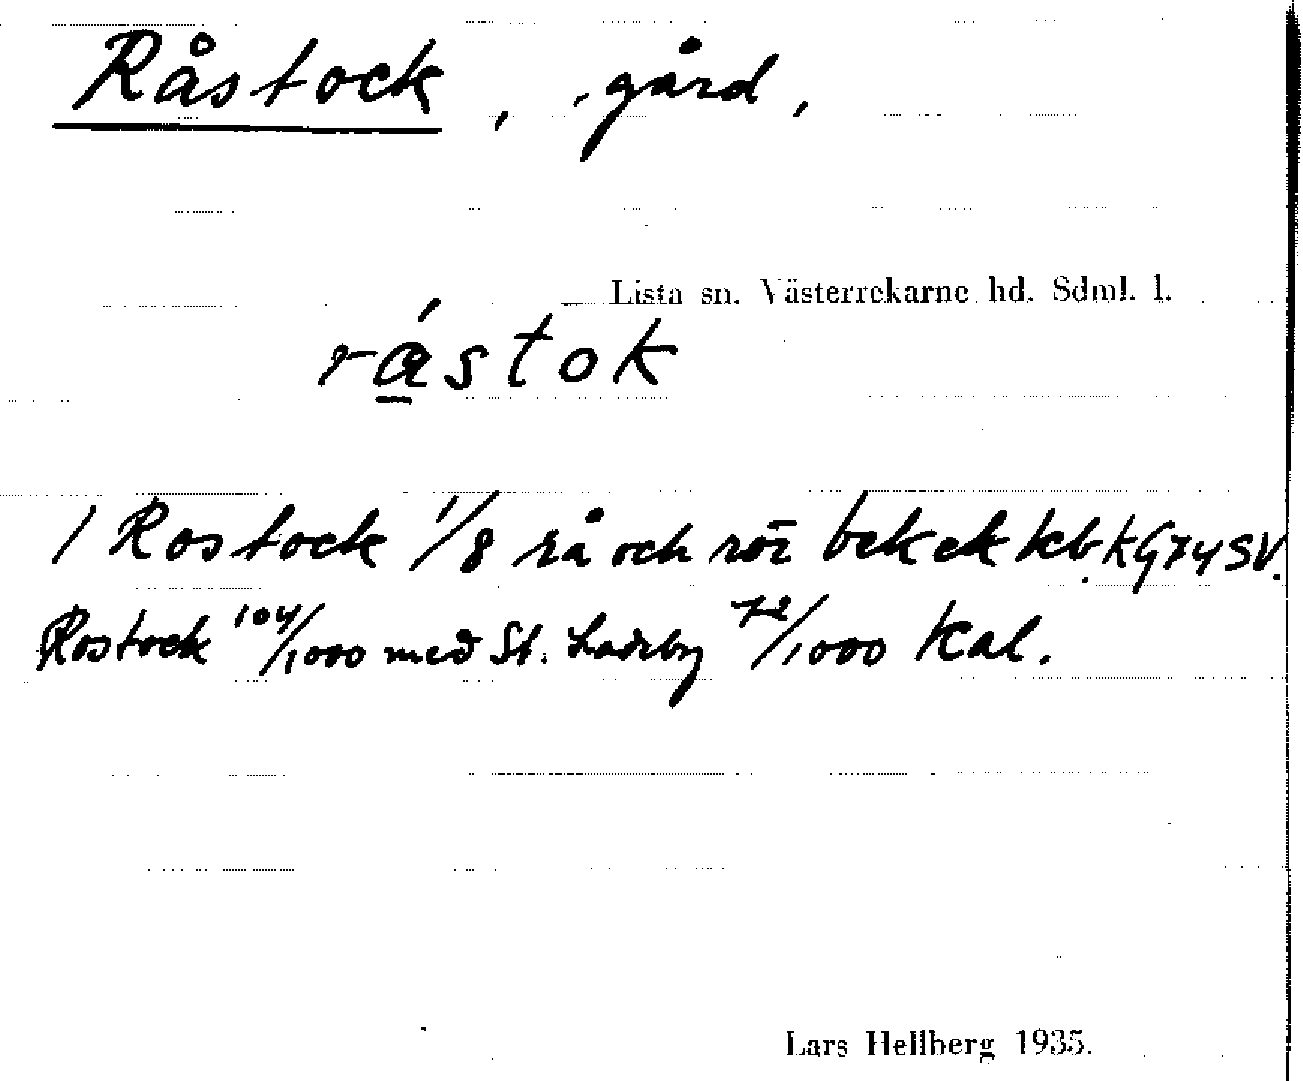 Råstock, gård,
Lista sn. Västerrekarne hd. Sdml. l.
rá̱stok
1 Rostock 1/8 rå och rör bek ek kb. KG 74 SV.
Rostock 104/1000 med St. Ladeby 72/1000 Kal.
Lars Hellberg 1935.